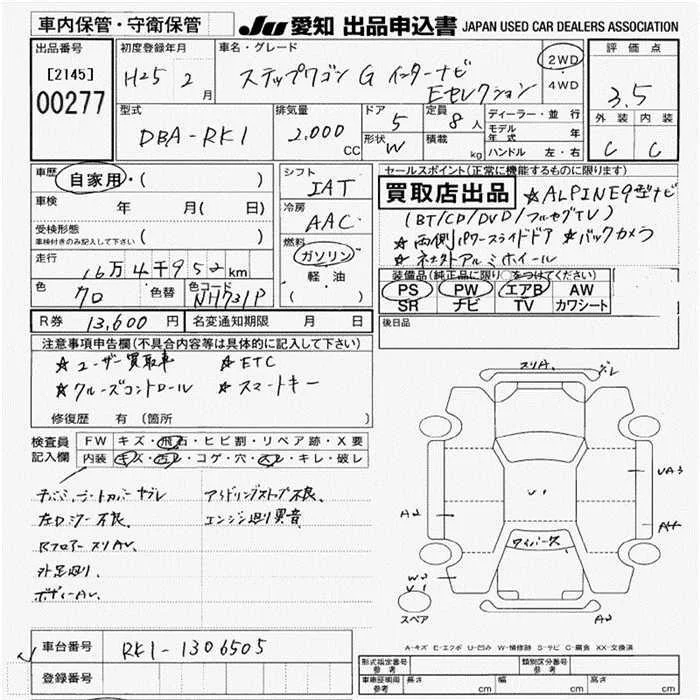 車内保管・守衛保管
JU 愛知 出品申込書 JAPAN USED CAR DEALERS ASSOCIATION
出品番号
[2145]
00277
初度登録年月
H25 2 月
車名・グレード
ステップワゴン G インターナビ
Eセレクション
2WD
・
4WD
評価点
3.5
外装 内装
C C
型式
DBA-RK1
排気量
2.000
CC
ドア
5
形状
W
定員
8人
積載
kg
ディーラー・並行
モデル年式 年
ハンドル 左・右
車歴
自家用・( )
車検 年 月( 日)
受検形態
車検付きのみ記入して下さい ( )
走行
16万4千952km
色
クロ
色替
色コード
NH731P
シフト
IAT
冷房
AAC
燃料
ガソリン
軽油
( )
セールスポイント(正常に機能するものに限ります)
買取店出品 ☆ALPINE9型ナビ
(BT/CD/DVD/フルセグTV)
☆両側パワースライドドア ☆バックカメラ
☆ネオクトアルミホイール
装備品(純正品に限り○をつけてください)
PS PW エアB AW
SR ナビ TV カワシート
後日品
R券 13,600 円
名変通知期限 月 日
注意事項申告欄(不具合内容等は具体的に記入して下さい)
☆ユーザー買取車 ☆ETC
☆クルーズコントロール ☆スマートキー
修復歴 有(箇所 )
検査員
記入欄
FW キズ・飛石・ヒビ割・リペア跡・X要
内装 キズ・汚レ・コゲ・穴・スレ・キレ・破レ
アイドリングストップ不良、
左ロミラー不良、 エンジン廻り異音
RフロアースリAU、
外足廻り、
ボディーAU、
スリA、
ズレ
UA3
A4
U1
A2
ワイパーX
W3
U1
A2
スペア
A-キズ E-エクボ U-凹み W-補修跡 S-サビ C-腐食 XX-交換済
車台番号 RK1-1306505
登録番号
形式指定番号
参考
類別区分番号
参考
車庫証明用
参考
長さ cm
幅 cm
高さ cm